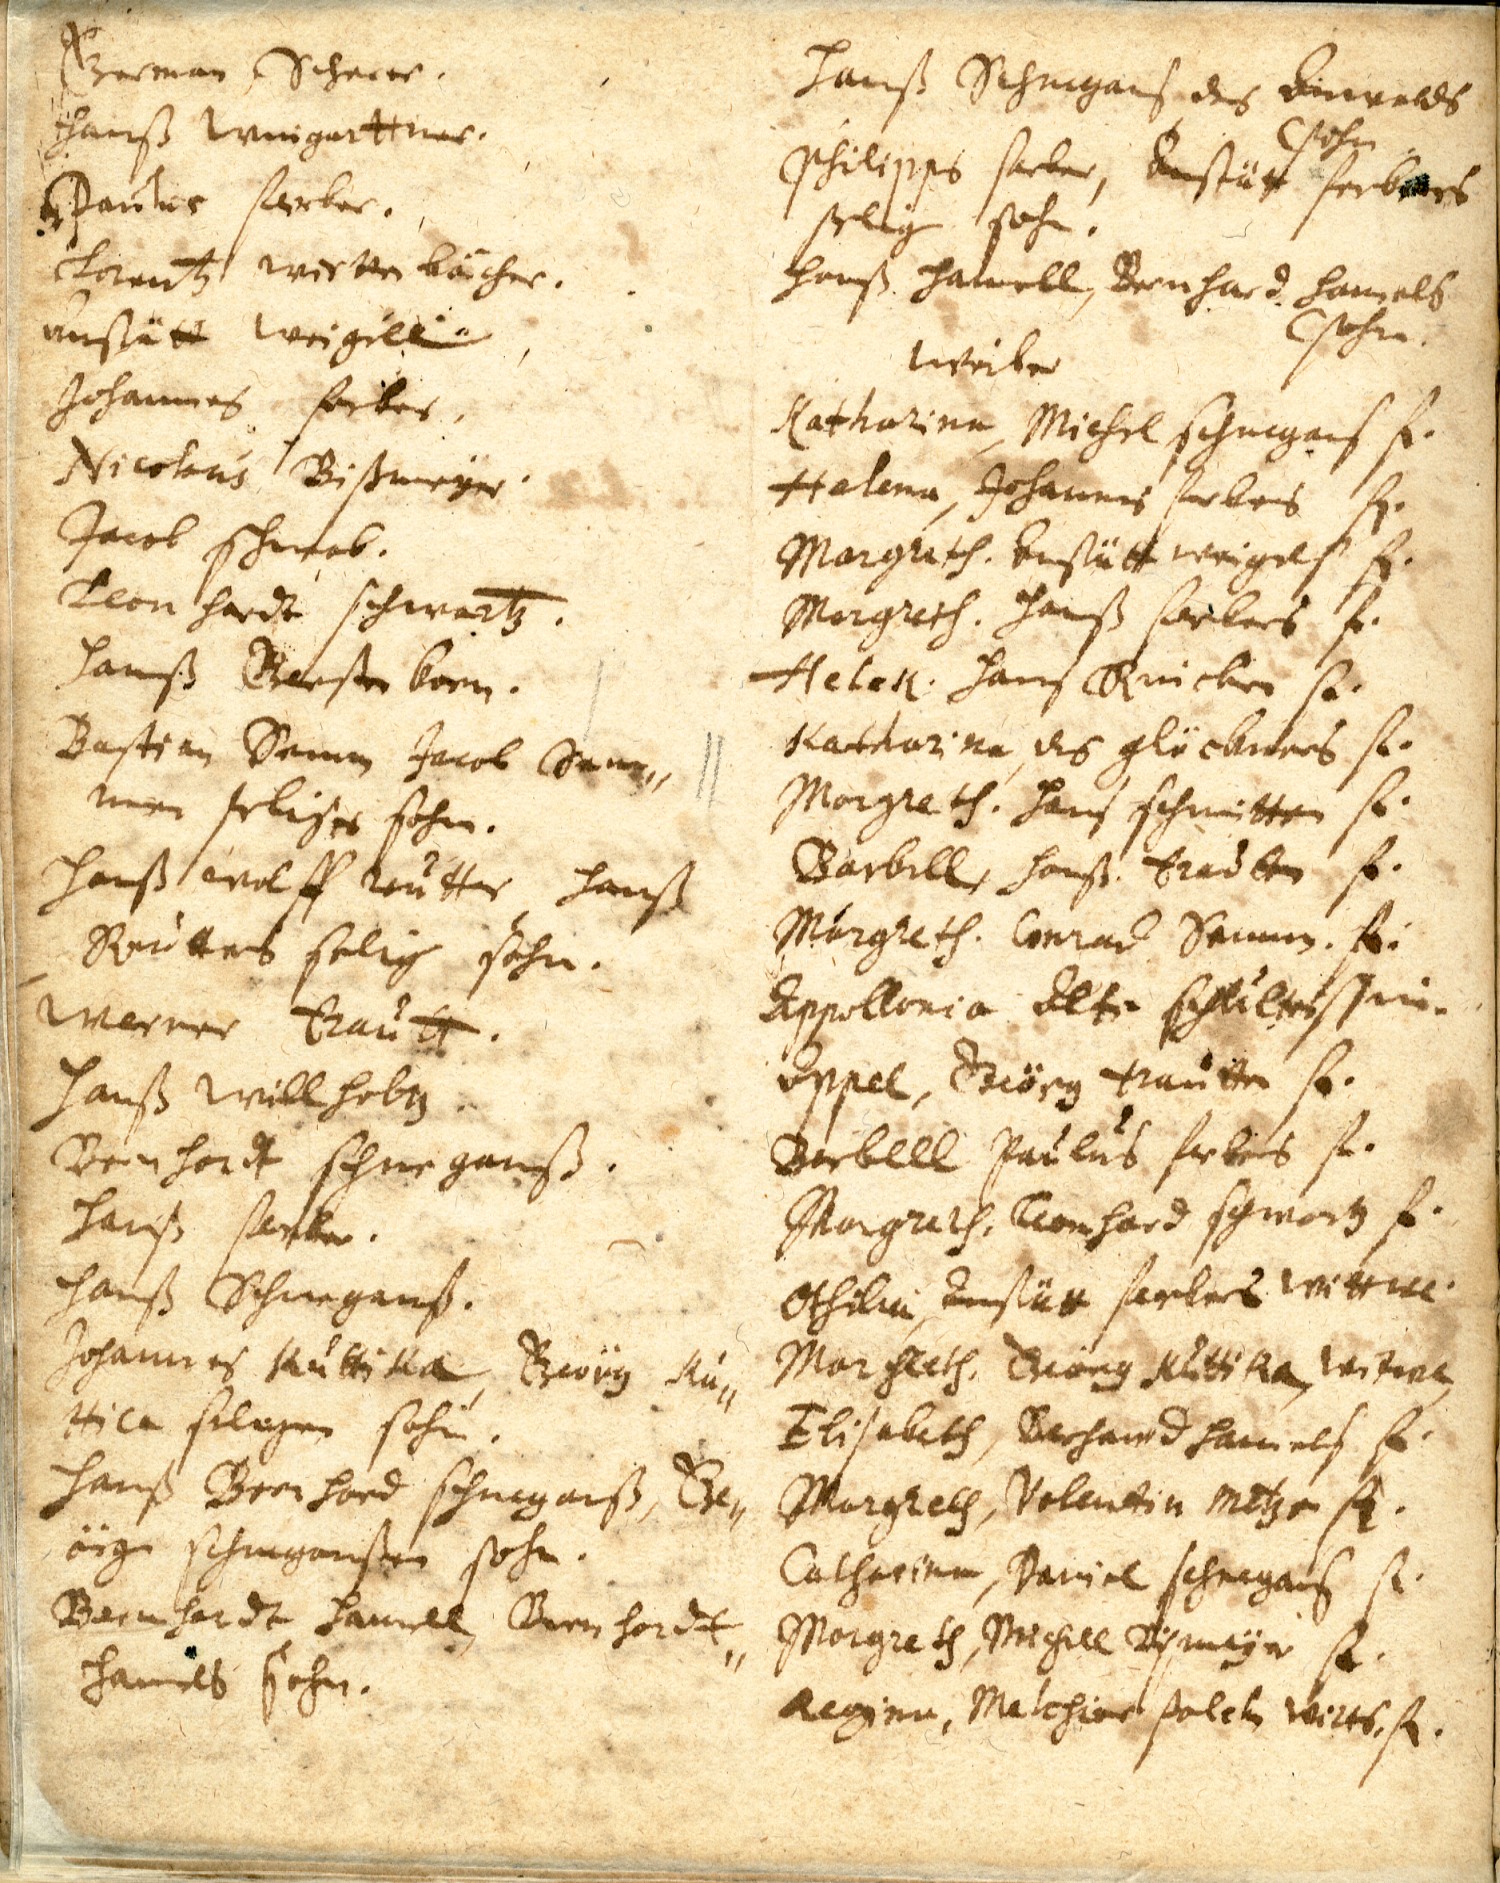 Herman Scherer.
Hanß Wingarttner.
Paulus ferber.
Lorentz
Anstätt Weigell
Johannes ferber.
Nicolaus Bißmeyer.
Jacob schwab.
Leonhardt schwartz.
Hanß Gerstenkorn.
Bastian Samm Jacob Sam„
men seliges sohn.
Hanß Wolff Reutter, Hanß
Reutters selig sohn.
Werner Trautt.
Hanß Willhelm
Bernhardt schneganß.
Hanß ferber.
Hanß Schneganß.
Johannes Kuttika, Georg Ku„
ttica seligen sohn.
Hanß Bernhard schneganß, Ge„
örg schneganßen sohn.
Bernhardt Hamell, Bernhardt„
Hamels sohn.
Hanß Schnegans, des
sohn.
Philipps ferber, Anstätt ferbers
selig sohn.
Hanß Hamell, Bernhard Hamels
sohn.
Weiber
Katharina, Michel schnegans f.
Helena, Johannes ferbers f.
Margreth. Anstätt weigels f.
Margreth. Hanß ferbers f.
Hans f.
Katharina, des glöckners f.
Margreth. Hans schmitten f.
Barbell, Hanß Trautten f.
Margreth. Conrad Samm. f.
Appollonia Alte schultessin.
Appel, Georg trautten f.
Barbell Paulus ferbers f.
Margreth, Leonhard schwartz f.
Othilia, Anstätt ferbers wittwe.
Margreth. Georg Kuttika, witwe,
Elisabeth, Bernhard Hamels f.
Margreth, Velentin Metzer f.
Catharina, Daniel schnegans f.
Margreth, Michell Bismeyer f.
Regina, Melchior f.